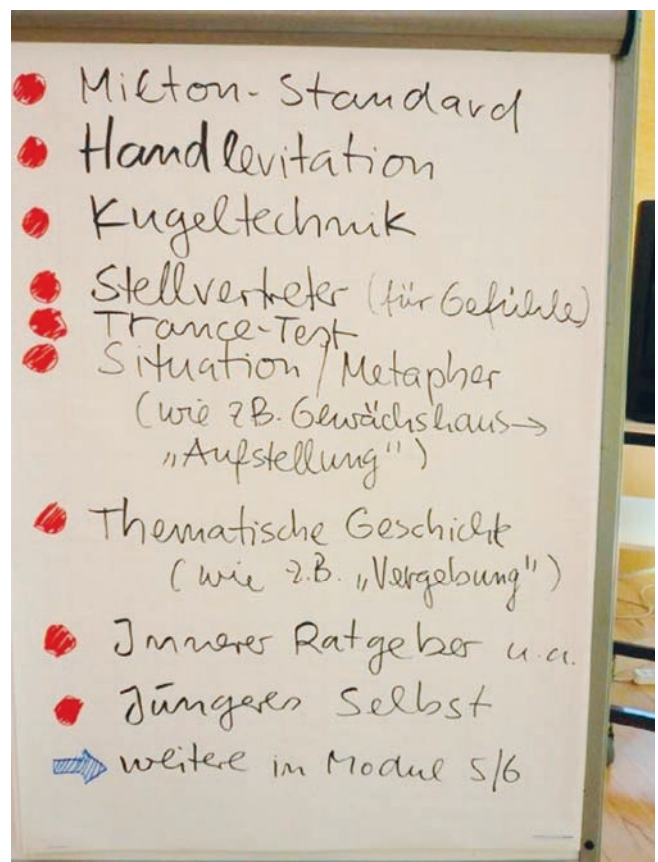 Milton-Standard
Handlevitation
Kugeltechnik
Stellvertreter (für Gefühle)
Trance-Test
Situation / Metapher
(wie z.B. Gewächshaus→
„Aufstellung")
Thematische Geschichte
(wie z.B. „Vergebung")
Innerer Ratgeber u.a.
Jüngeres Selbst
weitere in Modul 5/6